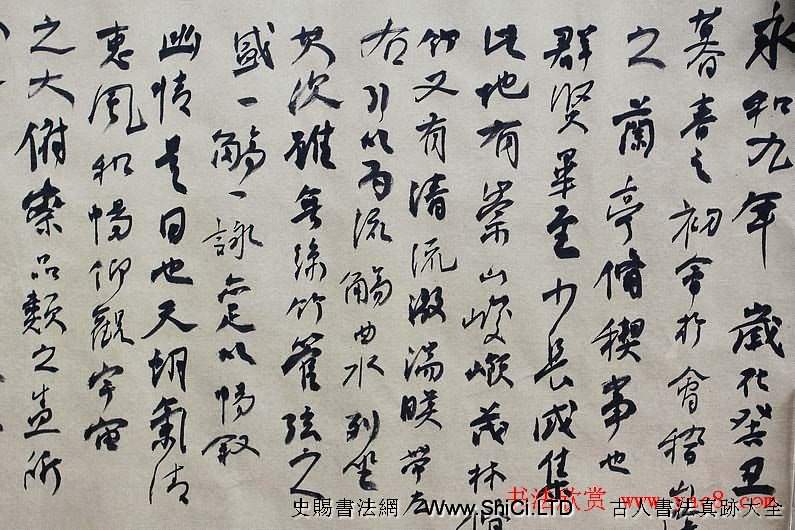 永和九年歲在癸丑
暮春之初會於會稽山陰
之蘭亭脩稧事也
群賢畢至少長咸集
此地有崇山峻嶺茂林脩
竹又有清流激湍暎帶左
右引以為流觴曲水列坐
其次雖無絲竹管弦之
盛一觴一詠亦足以暢敘
幽情是日也天朗氣清
惠風和暢仰觀宇宙
之大俯察品類之盛所
史賜書法網 www.ShiCi.LTD 古人書法真跡大全
书法欣赏